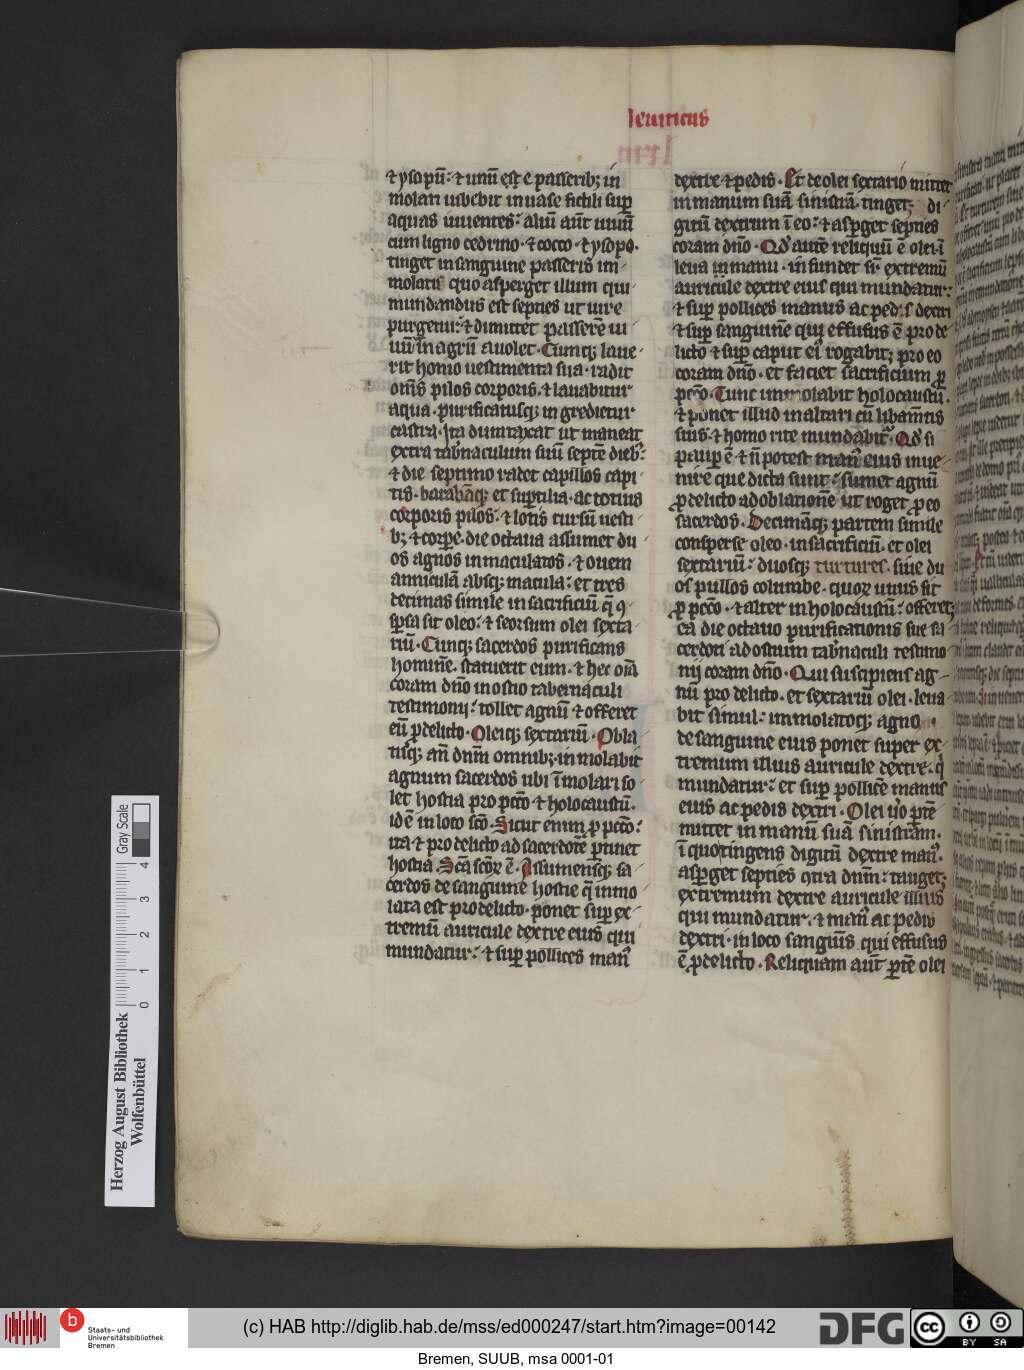 leuiticus
⁊ ysopū: ⁊ unū est e passerib; in
molari iubebit in uase fictili sup
aquas uiuentes: aliū aūt uiuū
cum ligno cedrino ⁊ cocco ⁊ ysopo.
tinget in sanguine passeris im
molatis quo asperget illum qui
mundandus est septies ut iure
purgetur: ⁊ dimittet passerē ui
uū in agrū auolet. Cumq; laue
rit homo uestimenta sua. radit
om̄s pilos corporis. ⁊ lauabitur
aqua. purificatusq; in gredietur
castra. Ita dumtaxat ut maneat
extra tab̄naculum suū septē dieb;
⁊ die septimo radet capillos capi
tis. barabāq; et sup̄cilia. ac totius
corporis pilos. ⁊ lotis rursū uesti
b; ⁊ corpe. die octaua assumet du
os agnos inmaculatos. ⁊ ouem
anniculā absq; macula: et tres
decimas simile in sacrificiū q̄ 9
sp̄sa sit oleo: ⁊ seorsum olei sexta
riū. Cunq; sacerdos purificans
hominē. statuerit eum. ⁊ hec oīa
coram dn̄o in ostio tabernaculi
testimonij: tollet agnū ⁊ offeret
eū p delicto. Oleiq; sextariū. Obla
tisq; añ dnm omnib; in molabit
agnum sacerdos ubi īmolari so
let hostia pro pcc̄o ⁊ holocaustū.
id ē in loco scō. Sicut enim p pccō:
ita ⁊ pro delicto ad sacerdotē ptinet
hostia Scā scōꝝ ē. Assumensq; sa
cerdos de sanguine hostie q̄ inmo
lata est pro delicto. ponet sup ex
tremū auricule dextre eius qui
mundatur: ⁊ sup pollices man᷒
dextre ⁊ pedis. Et de olei sextario mittet
in manum suā sinistrā. tinget; di
gitū dextrum ī eo: ⁊ asp̄get septies
coram dn̄o. Qd̓ autē reliquū ē olei ī
leua in manu. in fundet sr̄ extremū
auricule dextre eius qui mundatur:
⁊ sup pollices manus ac pedis dextri
⁊ sup sanguinē qui effusus ē pro de
licto ⁊ sup caput ei᷒ rogabit; pro eo
coram dn̄o. et faciet sacrificium p
pcc̄o. Tunc inmolabit holocaustū.
⁊ ponet illud in altari cū libam̄tis
suis. ⁊ homo rite mundabit᷑. Qd̓ si
paup ē ⁊ n̄ potest man᷒ eius inue
nire que dicta sunt: sumet agnū
p delicto ad oblationē ut roget p eo
sacerdos. Decimāq; partem simile
consperse oleo. in sacrificiū. et olei
sextariū: duosq; turtures. siue du
os pullos columbe. quoꝝ unus sit
p pcc̄o. ⁊ alter in holocaustū: offeret;
ea die octauo purificationis sue sa
cerdoti ad ostium tab̄naculi testimo
nij coram dn̄o. Qui suscipiens ag
nū pro delicto. et sextariū olei. leua
bit simul: immolatoq; agno
de sanguine eius ponet super ex
tremum illius auricule dextre. q̇
mundatur: et sup pollicē manus
eius ac pedis dextri. Olei ůo ptē
mittet in manū suā sinistram.
ī quo tingens digitū dextre man᷒.
asp̄get septies 9tra dnm̄: tanget;
extremum dextre auricule illius
qui mundatur. ⁊ man᷒ ac pedis
dextri. in loco sanguīs qui effusus
ē p delicto. Reliquam aūt ptē olei
Herzog August Bibliothek
Wolfenbüttel
0 1 2 3 4
Gray Scale
b
Staats- und
Universitätsbibliothek
Bremen
(c) HAB http://diglib.hab.de/mss/ed000247/start.htm?image=00142
DFG
cc BY SA
Bremen, SUUB, msa 0001-01